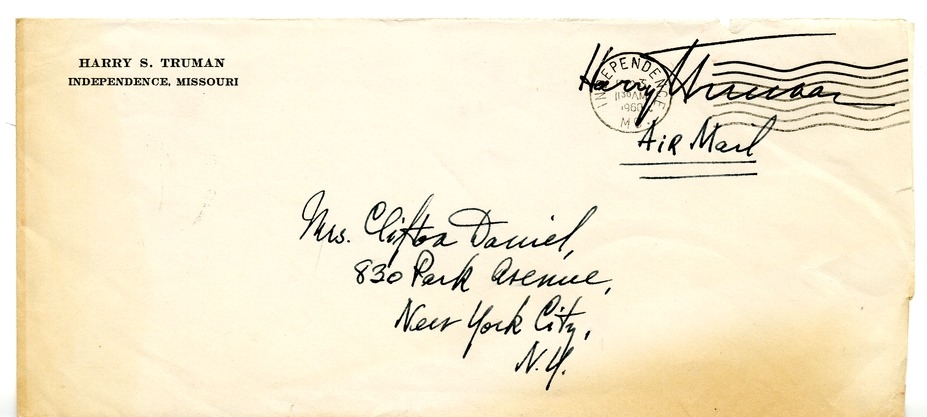 HARRY S. TRUMAN
INDEPENDENCE, MISSOURI
Harry Truman
INDEPENDENCE
1130 AM
1960
MO.
Air Mail
Mrs. Clifton Daniel,
830 Park Avenue,
New York City,
N.Y.